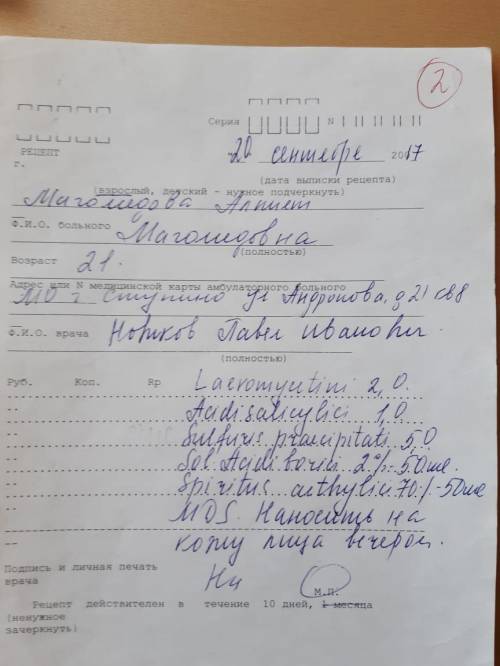 2
Серия N
РЕЦЕПТ 20 сентября 2017
г. (дата выписки рецепта)
(взрослый, детский - нужное подчеркнуть)
Магомедова
Ф.И.О. больного Магомедовна
(полностью)
Возраст 21.
Адрес или N медицинской карты амбулаторного больного
МО г Ступино ул Андропова, д 21 кв 8
Ф.И.О. врача Ножков Павел Иванович
(полностью)
Руб. Коп. Rp Laevomycetini 2,0.
Acidi salicylici 1,0.
Sulfuris praecipitati 5.0
Sol. Acidi borici 2% - 50 мл.
Spiritus aethylici 70% - 50 мл
MDS. Наносить на
кожу лица вечером.
Подпись и личная печать
врача
М.П.
Рецепт действителен в течение 10 дней, 1 месяца
(ненужное
зачеркнуть)